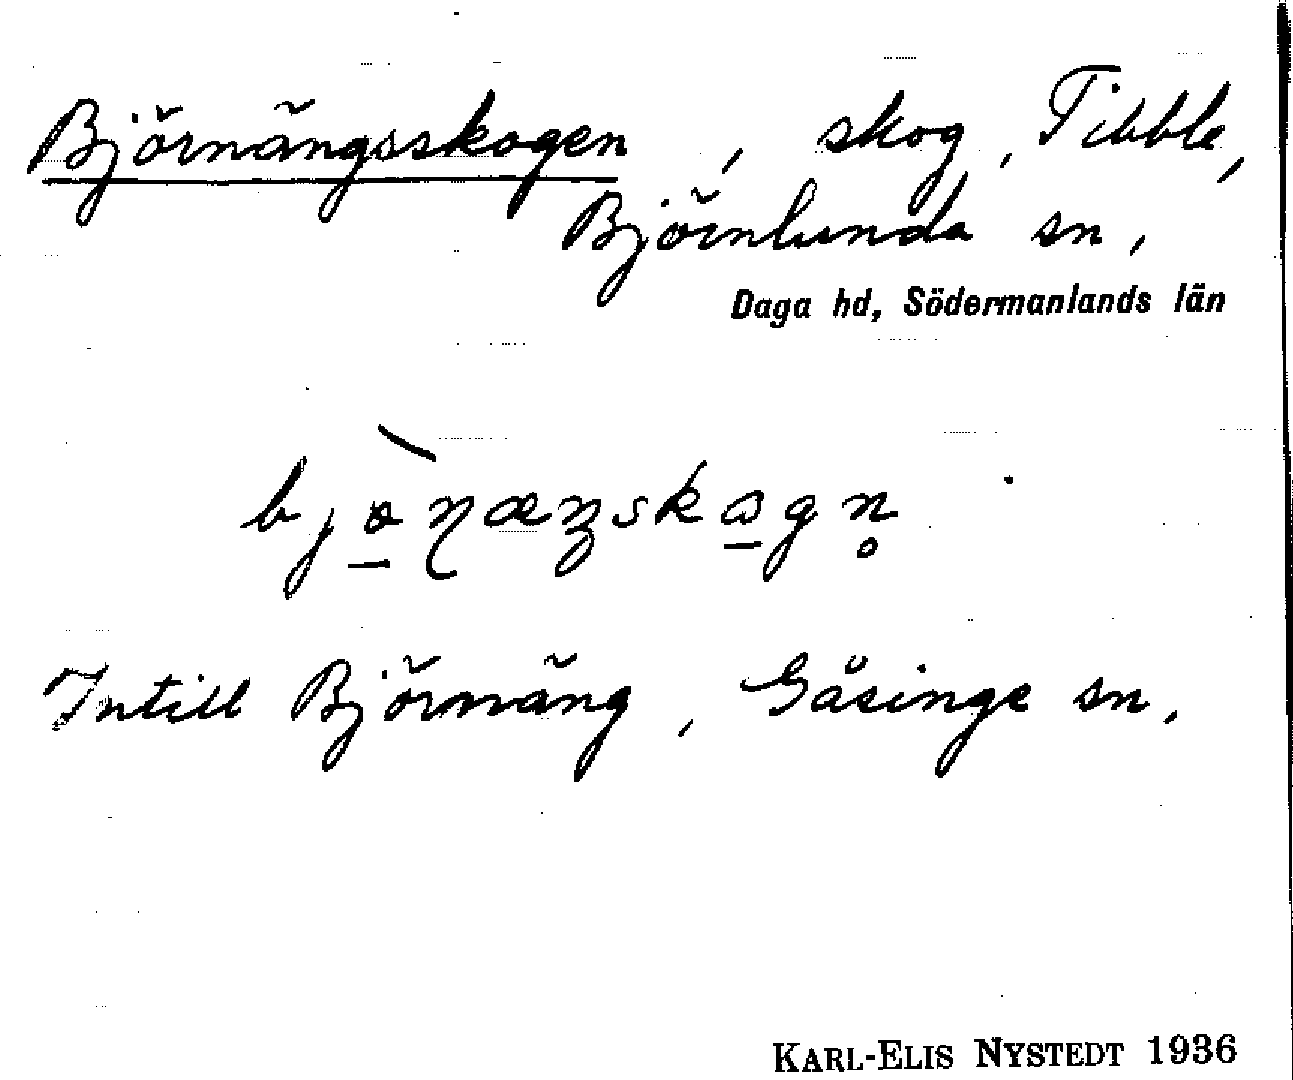 Björnängsskogen, skog, Tibble,
Björnlunda sn,
Daga hd, Södermanlands län
Intill Björnäng, Gåsinge sn.
KARL-ELIS NYSTEDT 1936